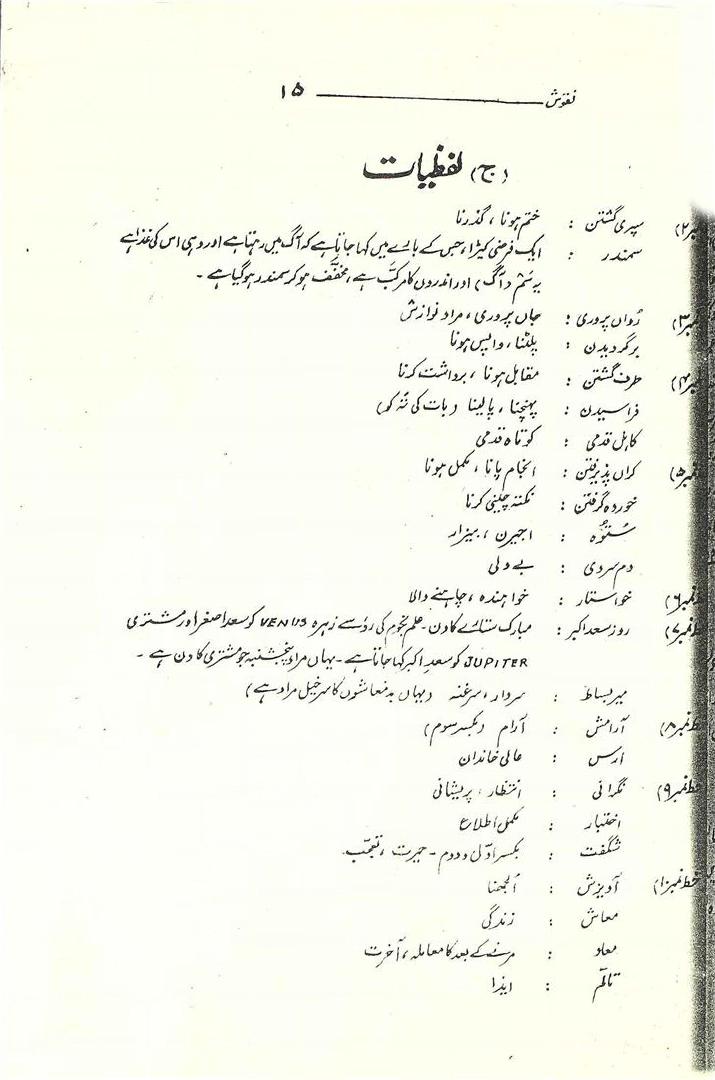 نقوش ــــــــــ ۱۵
(ج) لفظیات
نمبر۲) سپری گشتن : ختم ہونا ، گذرنا
سمندر : ایک فرضی کیڑا ، جس کے بارے میں کہا جاتا ہے کہ آگ میں رہتا ہے اور وہی اس کی غذا ہے
یہ سَم (آگ) اور اندرون کا مرکب ہے ، مخفّف ہو کر سمندر ہو گیا ہے ۔
نمبر۳) رُواں پروری : جاں پروری ، مراد نوازش
برگردیدن : پلٹنا ، واپس ہونا
نمبر۴) طرف گشتن : مقابل ہونا ، برداشت کرنا
فرا سیدن : پہنچنا ، پا لینا (بات کی تہ کو)
کاہل قدمی : کوتاہ قدمی
نمبر۵) کراں پذیرفتن : انجام پانا ، مکمل ہونا
خوردہ گرفتن : نکتہ چینی کرنا
ستوہ : اجیرن ، بیزار
دم سردی : بے دلی
نمبر۶) خواستار : خواہندہ ، چاہنے والا
خط نمبر۷) روز سعد اکبر : مبارک ستارے کا دن ۔ علم نجوم کی رُو سے زہرہ VENUS کو سعد اصغر اور مشتری
JUPITER کو سعدِ اکبر کہا جاتا ہے ۔ یہاں مراد پنجشنبہ جو مشتری کا دن ہے ۔
میر بساط : سردار ، سرغنہ (یہاں بدمعاشوں کا سرخیل مراد ہے)
خط نمبر۸) آرامش : آرام (بکسر سوم)
ارس : عالی خاندان
خط نمبر۹) نگرانی : انتظار ، پریشانی
اختبار : مکمل اطلاع
شگفت : بکسر اوّل و دوم ۔ حیرت ، تعجّب
خط نمبر۱۰) آویزش : اُلجھنا
معاش : زندگی
معاد : مرنے کے بعد کا معاملہ ، آخرت
تالّم : ایذا